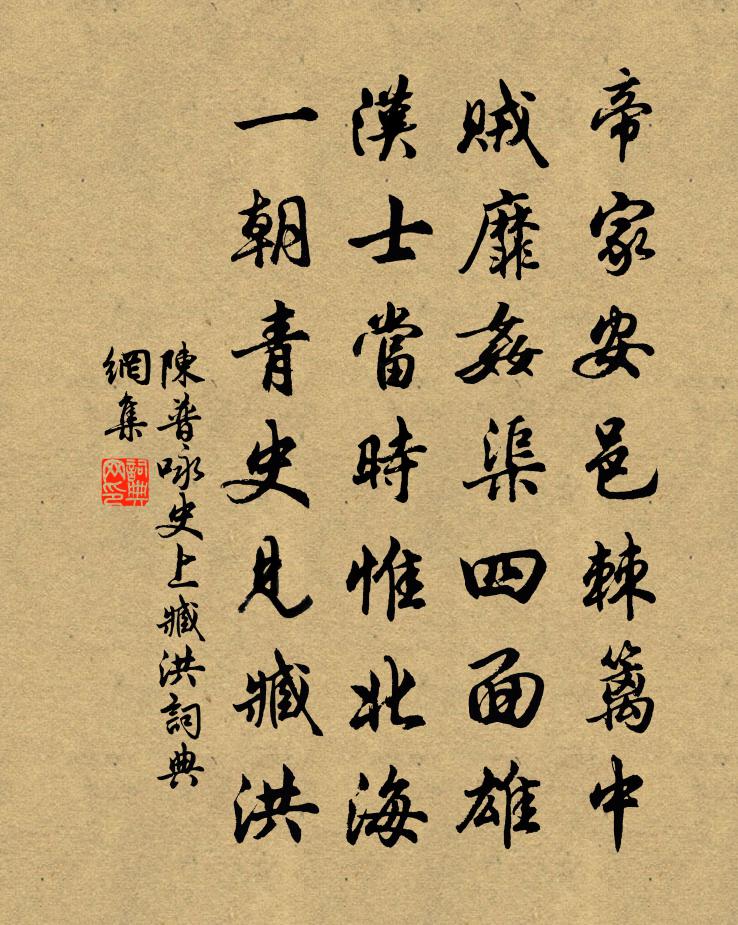 帝家安邑棘籬中
賊靡姦渠四面雄
漢士當時惟北海
一朝青史見臧洪
陳普咏史上臧洪詞典
網集
詞典網印